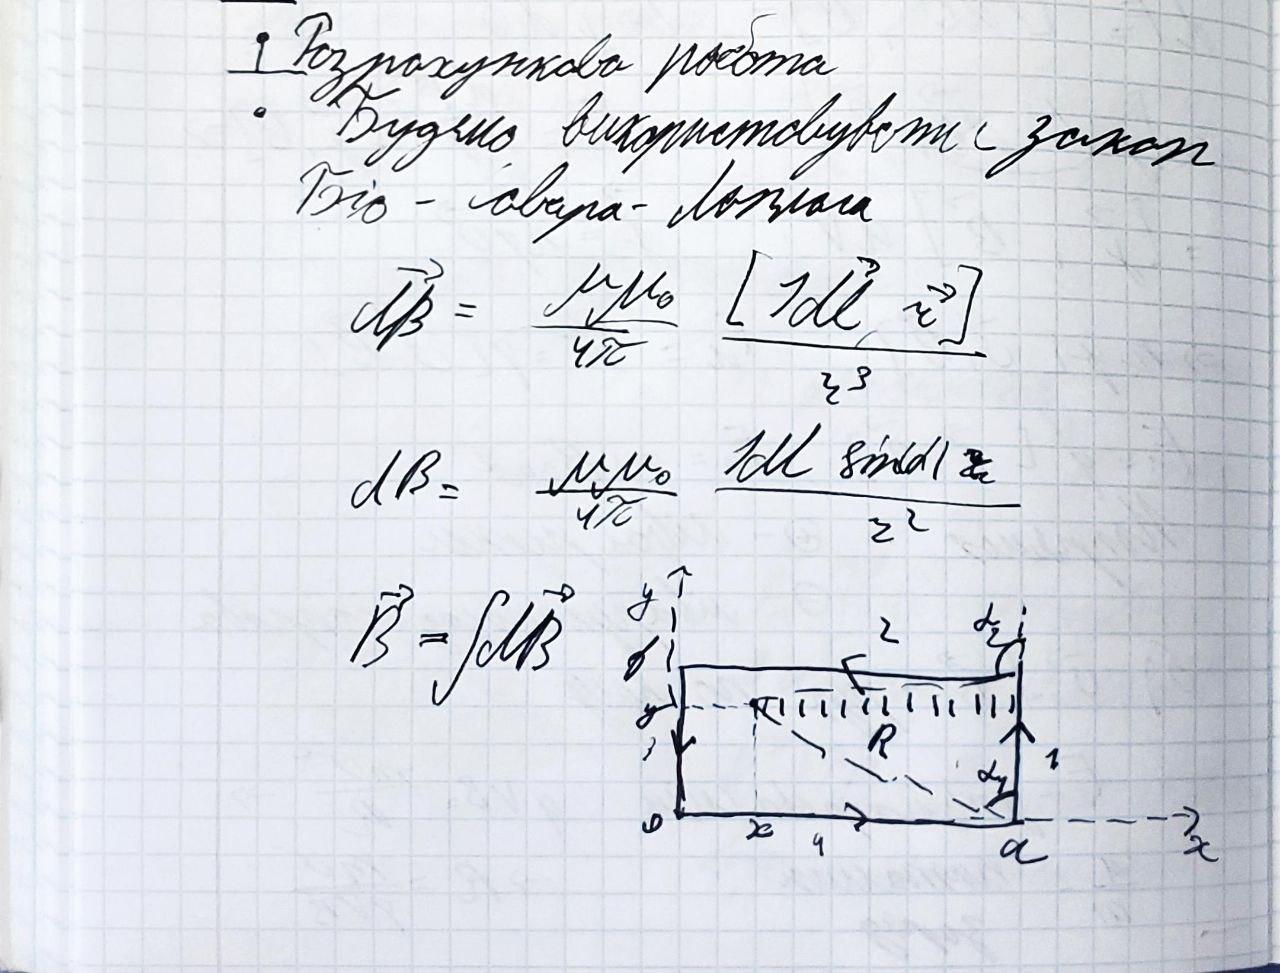 1 Розрахункова робота
• Будемо використовувати закон
Біо - Савара - Лапласа
dB⃗ = μμ₀/4π [Idl⃗ r⃗]/r³
dB = μμ₀/4π Idl sin(α)/r²
B⃗ = ∫dB⃗
y
b
y
2
α₂
R
3
1
α₁
0
x
4
a
x